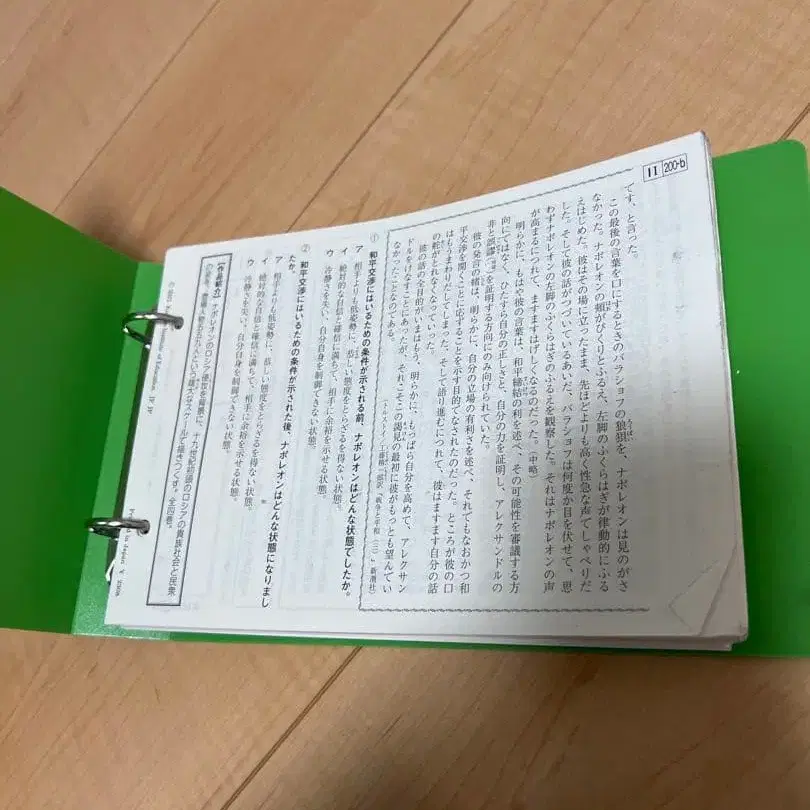 I I 200-b
です、と言った。
この最後の言葉を口にするときのバラショフの狼狽を、ナポレオンは見のがさ
なかった。ナポレオンの頬がぴくりとふるえ、左脚のふくらはぎが律動的にふる
えはじめた。彼はその場に立ったまま、先ほどよりも高く性急な声でしゃべりだ
した。そして彼の話がつづいているあいだ、バラショフは何度か目を伏せて、思
わずナポレオンの左脚のふくらはぎのふるえを観察した。それはナポレオンの声
が高まるにつれて、ますますはげしくなるのだった。(中略)
明らかに、もはや彼の言葉は、和平締結の利を述べ、その可能性を審議する方
向にではなく、ひたすら自分の正しさと、自分の力を証明し、アレクサンドルの
非と誤謬を証明する方向にのみ向けられていた。
彼の発言の緒は、明らかに、自分の立場の有利さを述べ、それでもなおかつ和
平交渉を開くことに応ずることを示す目的でなされたのだった。ところが彼の口
はもうまわりだしてしまった、そして語り進むにつれて、彼はますます自分の話
の舵がとれなくなっていった。
彼の話の全目的がいまはもう、明らかに、もっぱら自分を高めて、アレクサン
ドルをけなすことにあったが、それこそこの謁見の最初に彼がもっとも望んでい
なかったことなのである。
(トルストイ/工藤精一郎訳『戦争と平和(三)』新潮社)
① 和平交渉にはいるための条件が示される前、ナポレオンはどんな状態でしたか。
ア 相手よりも低姿勢に、悲しい態度をとらざるを得ない状態。
イ 絶対的な自信と確信に満ちて、相手に余裕を示せる状態。
ウ 冷静さを失い、自分自身を制御できない状態。
② 和平交渉にはいるための条件が示された後、ナポレオンはどんな状態になりまし
たか。
ア 相手よりも低姿勢に、悲しい態度をとらざるを得ない状態。
イ 絶対的な自信と確信に満ちて、相手に余裕を示せる状態。
ウ 冷静さを失い、自分自身を制御できない状態。
【作品紹介】ナポレオンのロシア侵攻を背景に、十九世紀初頭のロシアの貴族社会と民衆
の姿を、登場人物五五九人という雄大なスケールで描きつくす。全四巻。
of Education JP JP
in Japan